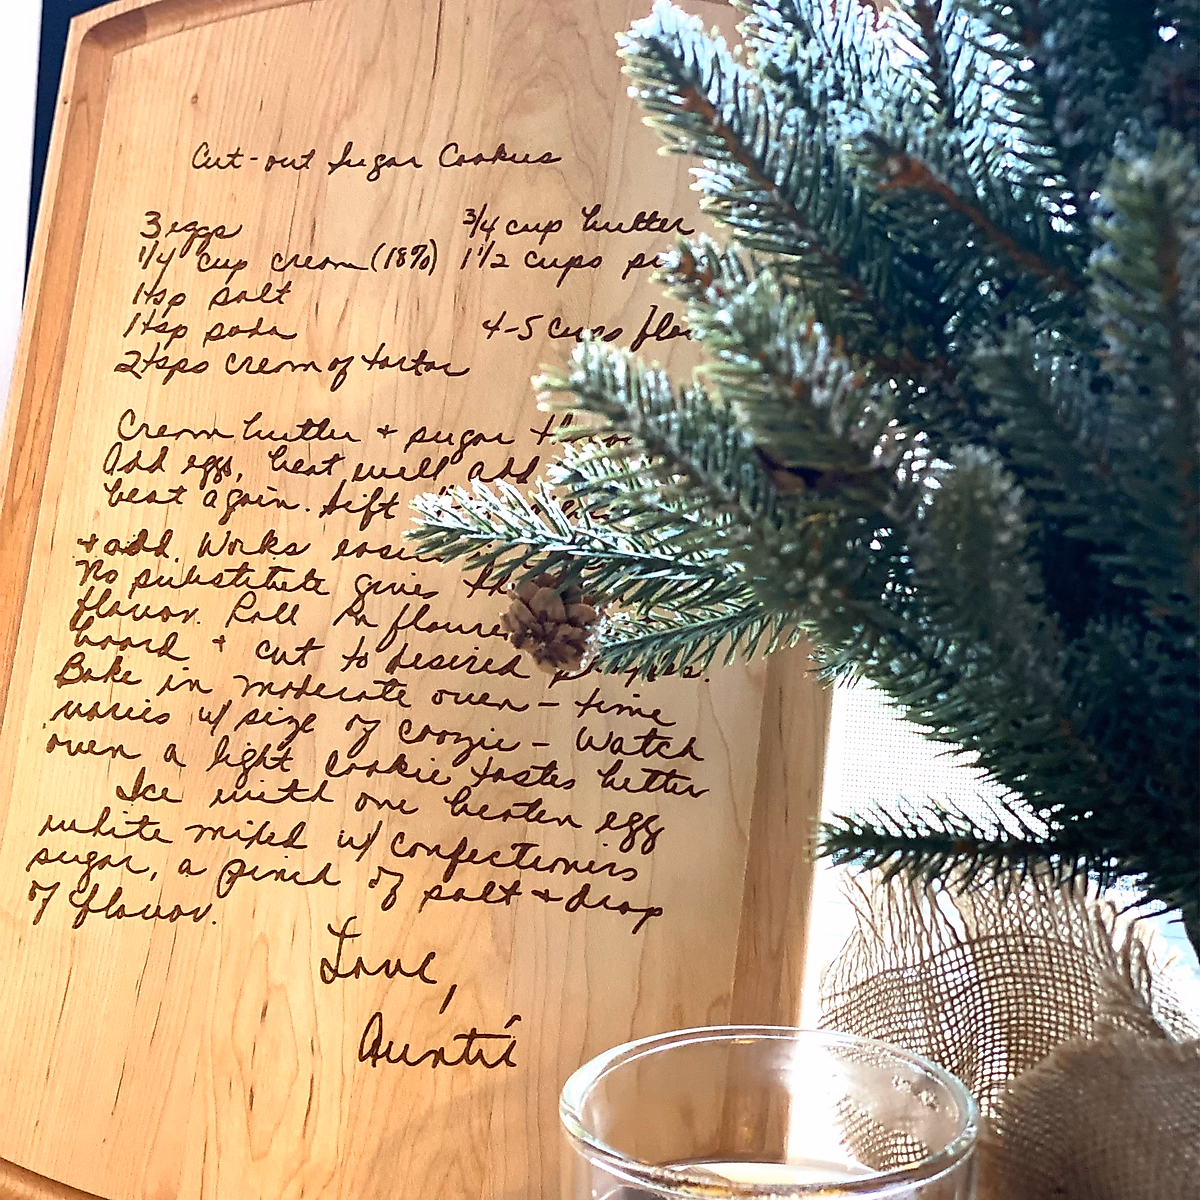 Cut-out Sugar Cookies
3 eggs 3/4 cup butter
1/4 cup cream (18%) 1 1/2 cups
1 tsp salt
1 tsp soda 4-5 cups
2 tsps cream of tartar
Cream butter + sugar
Add eggs, beat well, add
beat again. Sift
+ add. Works
No substitute gives
flavor. Roll on
board + cut to desired
Bake in moderate oven - time
varies w/ size of coozie - Watch
oven a light cookie tastes better
Ice with one beaten egg
white mixed w/ confectioners
sugar, a pinch of salt + drop
of flavor.
Love,
Auntie